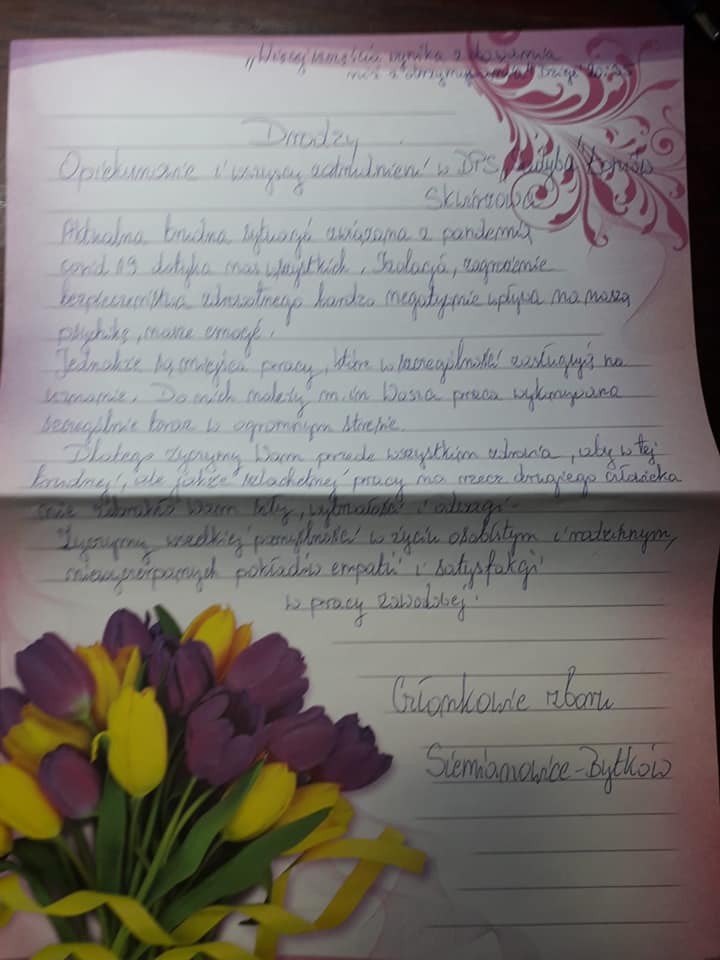 „Więcej szczęścia wynika z dawania
niż z otrzymywania" Dzieje 20:35
Drodzy
Opiekunowie i wszyscy zatrudnieni w DPS „
Aktualna trudna sytuacja związana z pandemią
covid 19 dotyka nas wszystkich. Izolacja, zagrożenie
bezpieczeństwa zdrowotnego bardzo negatywnie wpływa na naszą
psychikę, nasze emocje.
Jednakże są miejsca pracy, które w szczególności zasługują na
uznanie. Do nich należy m.in Wasza praca wykonywana
szczególnie teraz w ogromnym stresie.
Dlatego życzymy Wam przede wszystkim zdrowia, aby w tej
trudnej, ale jakże szlachetnej pracy na rzecz drugiego człowieka
nie zabrakło Wam siły, wytrwałości i odwagi.
Życzymy wszelkiej pomyślności w życiu osobistym i rodzinnym,
niewyczerpanych pokładów empatii i satysfakcji
w pracy zawodowej.
Członkowie zboru
Siemianowice-Bytków